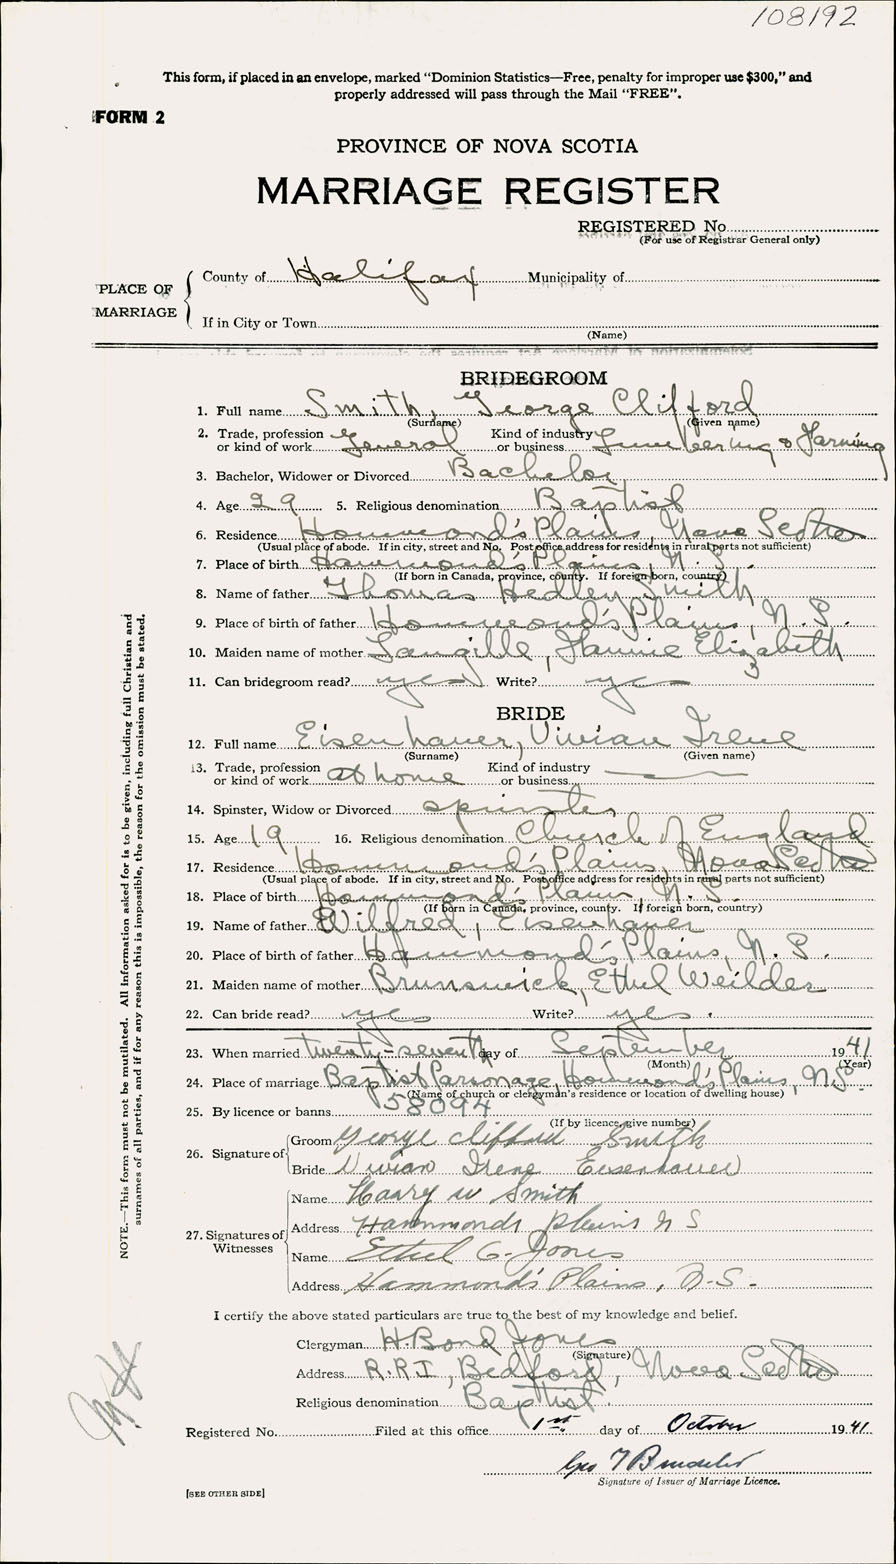 108192
This form, if placed in an envelope, marked “Dominion Statistics—Free, penalty for improper use $300,” and
properly addressed will pass through the Mail “FREE”.
FORM 2
PROVINCE OF NOVA SCOTIA
MARRIAGE REGISTER
REGISTERED No
(For use of Registrar General only)
PLACE OF MARRIAGE
County of Halifax Municipality of
If in City or Town
(Name)
BRIDEGROOM
1. Full name Smith, George Clifford
(Surname) (Given name)
2. Trade, profession or kind of work General Kind of industry or business Lumbering & Farming
3. Bachelor, Widower or Divorced Bachelor
4. Age 29 5. Religious denomination Baptist
6. Residence Hammond's Plains, Nova Scotia
(Usual place of abode. If in city, street and No. Post office address for residents in rural parts not sufficient)
7. Place of birth Hammond's Plains, N.S.
(If born in Canada, province, county. If foreign born, country)
8. Name of father Thomas Hedley Smith
9. Place of birth of father Hammond's Plains, N.S.
10. Maiden name of mother Langille, Fannie Elizabeth
11. Can bridegroom read? yes Write? yes
BRIDE
12. Full name Eisenhauer, Vivian Irene
(Surname) (Given name)
13. Trade, profession or kind of work at home Kind of industry or business
14. Spinster, Widow or Divorced spinster
15. Age 19 16. Religious denomination Church of England
17. Residence Hammond's Plains, Nova Scotia
(Usual place of abode. If in city, street and No. Post office address for residents in rural parts not sufficient)
18. Place of birth Hammond's Plains, N.S.
(If born in Canada, province, county. If foreign born, country)
19. Name of father Wilfred, Eisenhauer
20. Place of birth of father Hammond's Plains, N.S.
21. Maiden name of mother Brunswick, Ethel
22. Can bride read? yes Write? yes.
23. When married twenty-seventh day of September 1941
(Month) (Year)
24. Place of marriage Baptist Parsonage, Hammond's Plains, N.S.
(Name of church or clergyman's residence or location of dwelling house)
25. By licence or banns 58094
(If by licence, give number)
26. Signature of
Groom George Clifford Smith
Bride Vivian Irene Eisenhauer
27. Signatures of Witnesses
Name Harry W Smith
Address Hammonds plains N S
Name Ethel G. Jones
Address Hammond's Plains, N.S.
I certify the above stated particulars are true to the best of my knowledge and belief.
Clergyman H. Bond Jones
(Signature)
Address R.R.1, Bedford, Nova Scotia
Religious denomination Baptist.
Registered No. Filed at this office 1st. day of October 1941.
Geo T
Signature of Issuer of Marriage Licence.
[SEE OTHER SIDE]
NOTE.—This form must not be mutilated. All information asked for is to be given, including full Christian and
surnames of all parties, and if for any reason this is impossible, the reason for the omission must be stated.